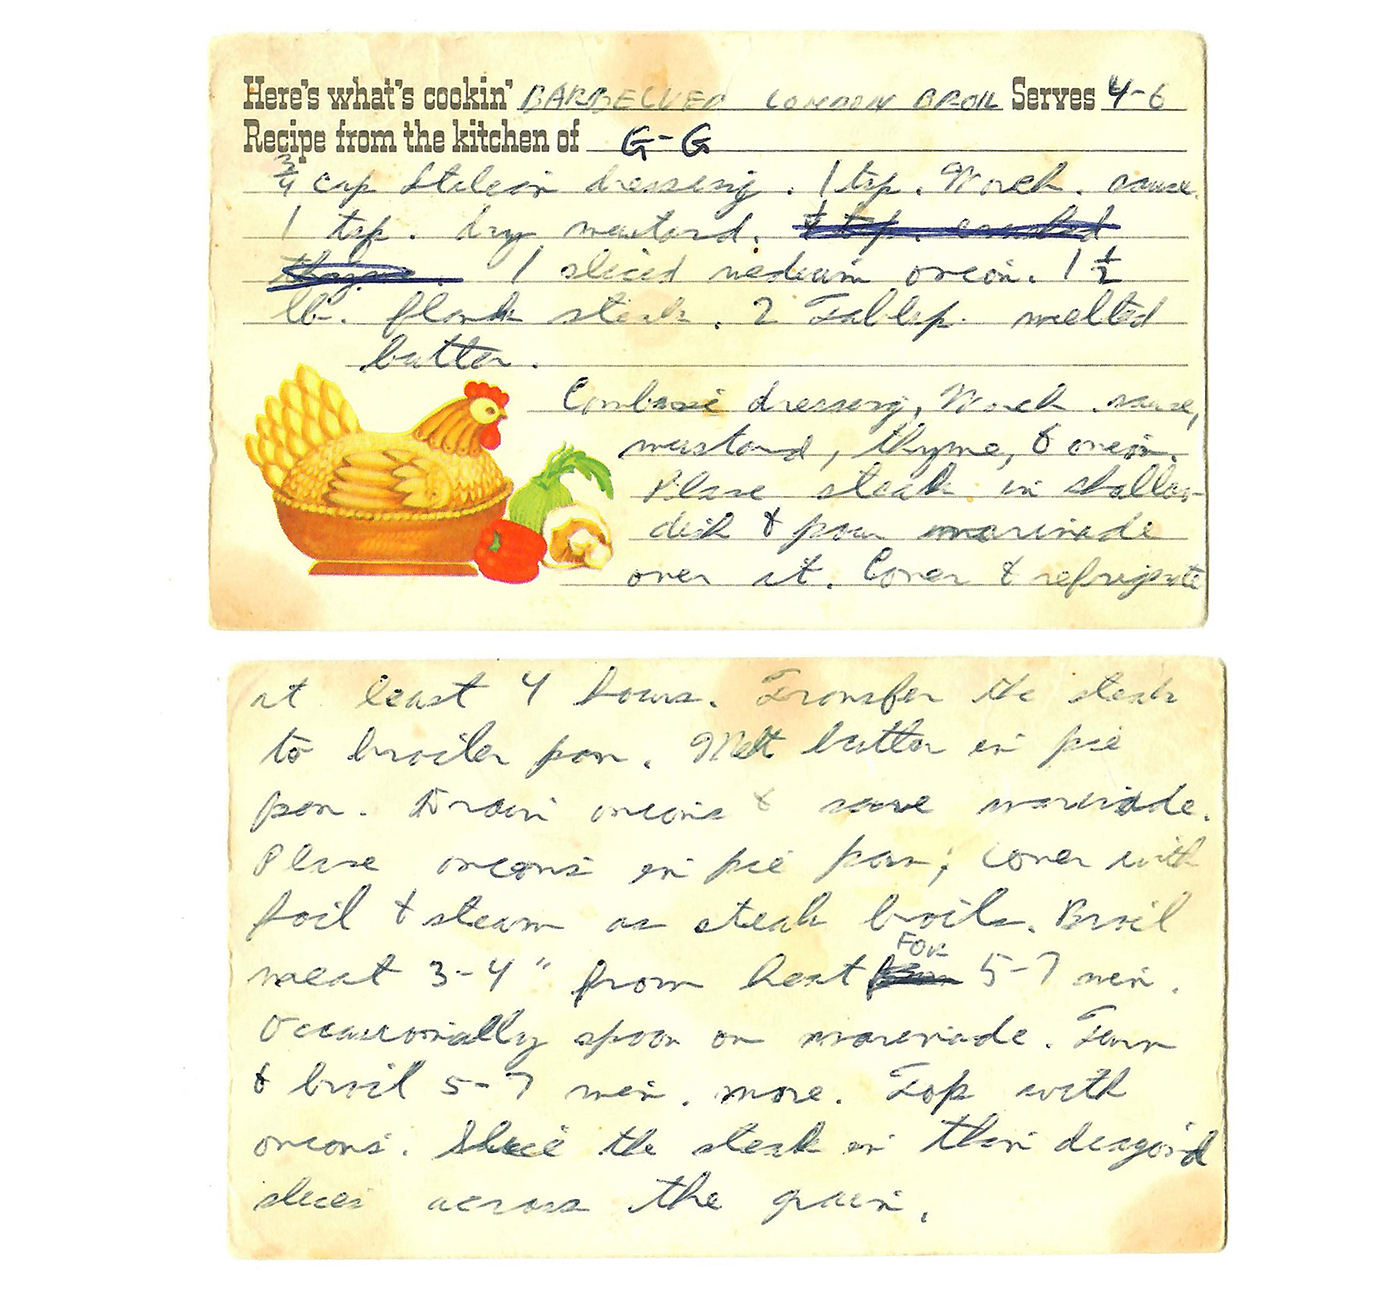 Here's what's cookin' BARBECUED LONDON BROIL Serves 4-6
Recipe from the kitchen of G-G
3/4 cup Italian dressing. 1 tsp. Worch. sauce.
1 tsp. dry mustard. 1 tsp. crushed
thyme 1 sliced medium onion. 1 1/2
lb. flank steak. 2 Tablesp. melted
butter.
Combine dressing, Worch sauce,
mustard, thyme, & onion.
Place steak in shallow
dish & pour marinade
over it. Cover & refrigerate
at least 4 hours. Transfer the steak
to broiler pan. Melt butter in pie
pan. Drain onions & save marinade.
Place onions in pie pan; cover with
foil & steam as steak broils. Broil
meat 3-4" from heat FOR 5-7 min.
Occassionally spoon on marinade. Turn
& broil 5-7 min. more. Top with
onions. Slice the steak in thin diagonal
slices across the grain.